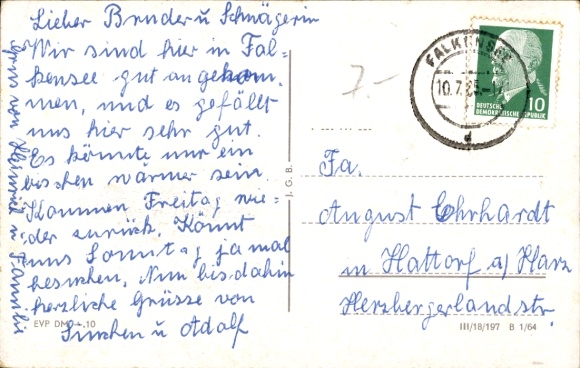 Lieber Bruder u Schwägerin
Wir sind hier in Fal=
kensee gut angekom=
men, und es gefällt
uns hier sehr gut.
Es könnte nur ein
bischen warmer sein.
Kommen Freitag wie=
der zurück. Könnt
uns Sonntag ja mal
besuchen. Nun bis dahin
herzliche Grüsse von
u Adolf
Gruss von Heinrich u Familie
EVP DM 10
J.G.B.
7.-
FALKENSEE
10.7.65
d
DEUTSCHE
DEMOKRATISCHE REPUBLIK
10
Fa.
August Ehrhardt
in Hattorf a/Harz
Herzbergerlandstr.
III/18/197 B 1/64